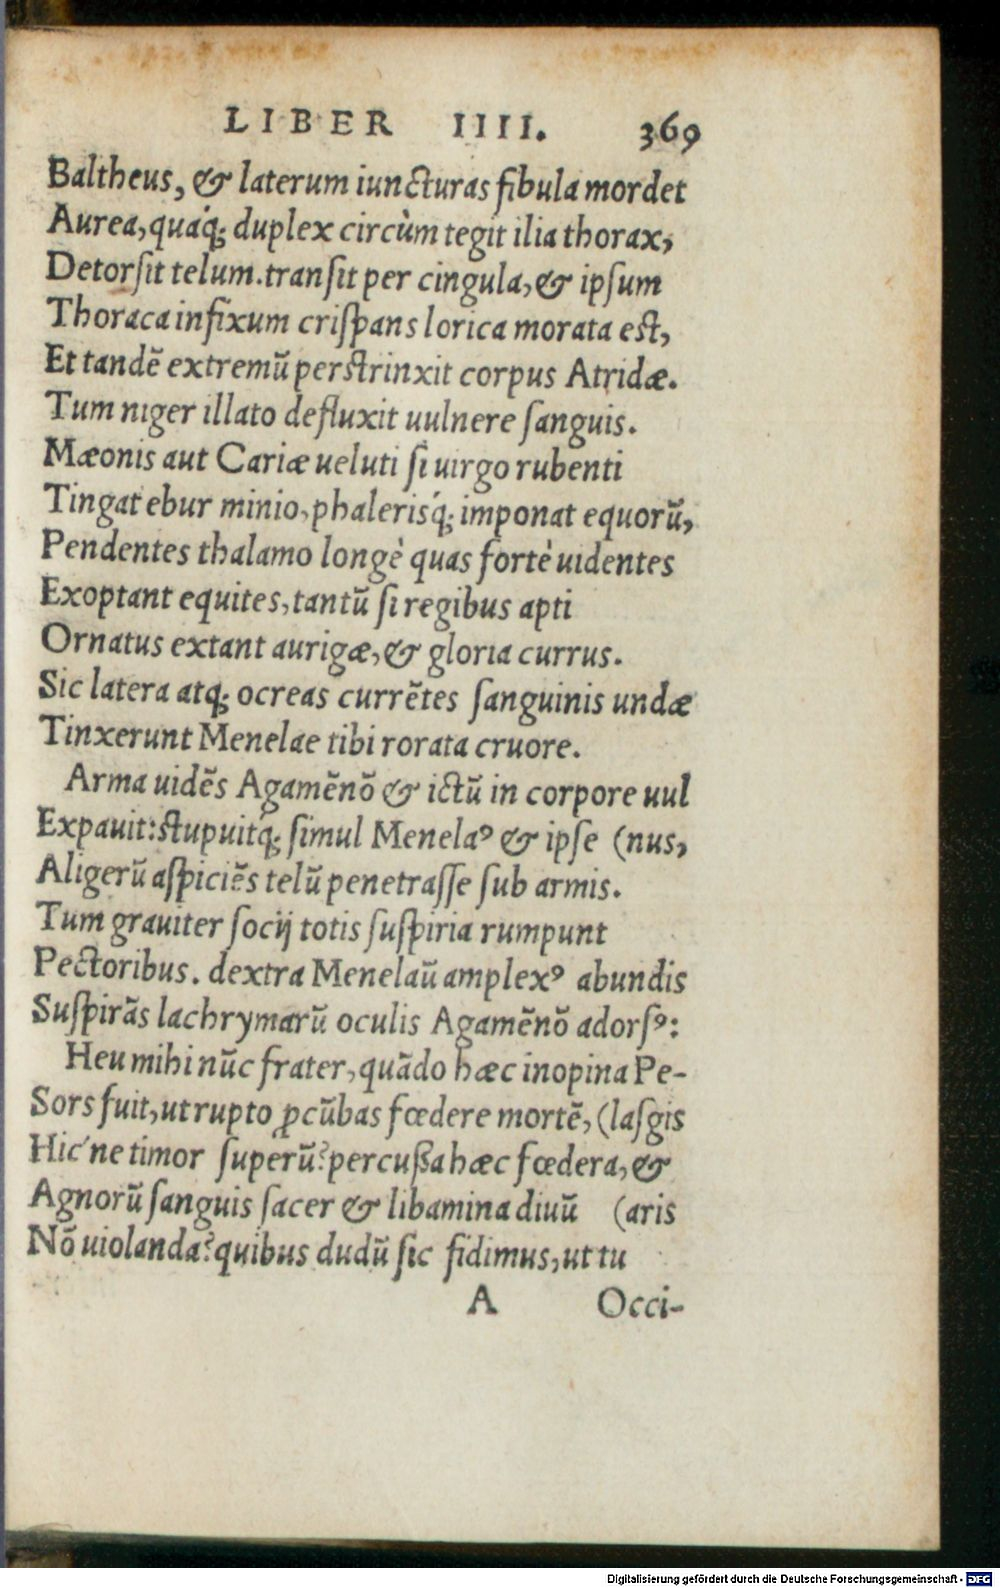 LIBER IIII. 369
Baltheus, & laterum iuncturas fibula mordet
Aurea, quáq; duplex circùm tegit ilia thorax,
Detorsit telum. transit per cingula, & ipsum
Thoraca infixum crispans lorica morata est,
Et tandē extremū perstrinxit corpus Atridæ.
Tum niger illato defluxit uulnere sanguis.
Mæonis aut Cariæ ueluti si uirgo rubenti
Tingat ebur minio, phalerisq́; imponat equorū,
Pendentes thalamo longè quas fortè uidentes
Exoptant equites, tantū si regibus apti
Ornatus extant aurigæ, & gloria currus.
Sic latera atq; ocreas currētes sanguinis undæ
Tinxerunt Menelae tibi rorata cruore.
Arma uidēs Agamēnō & ictū in corpore uul
Expauit: stupuitq́; simul Menelaꝰ & ipse (nus,
Aligerū aspiciēs telū penetrasse sub armis.
Tum grauiter socij totis suspiria rumpunt
Pectoribus. dextra Menelaū amplexꝰ abundis
Suspirās lachrymarū oculis Agamēnō adorsꝰ:
Heu mihi nūc frater, quādo hæc inopina Pe-
Sors fuit, ut rupto ꝓcūbas fœdere mortē, (lasgis
Hic'ne timor superū? percussa hæc fœdera, &
Agnorū sanguis sacer & libamina diuū (aris
Nō uiolanda? quibus dudū sic fidimus, ut tu
A Occi-
Digitalisierung gefördert durch die Deutsche Forschungsgemeinschaft - DFG